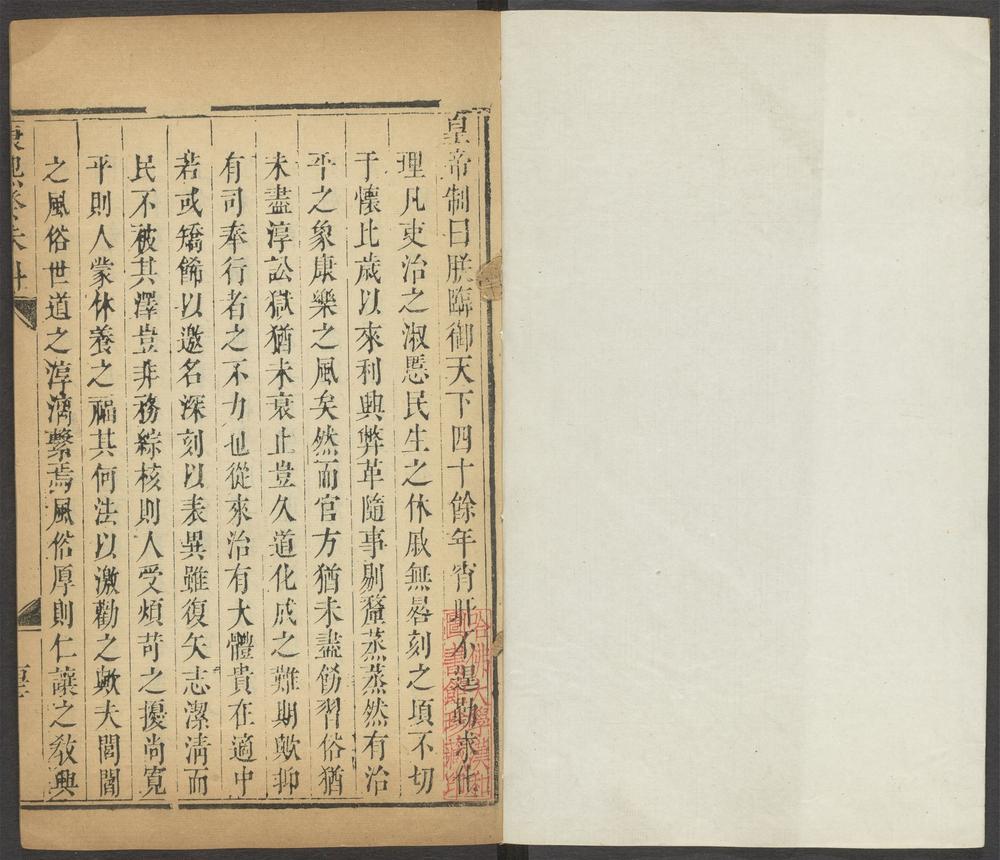 皇帝制曰朕臨御天下四十餘年宵旰不遑勤求化
理凡吏治之淑慝民生之休戚無晷刻之項不切
于懷比歲以來利興弊革隨事剔釐蒸蒸然有治
平之象康樂之風矣然而官方猶未盡飭習俗猶
未盡淳訟獄猶未衰止豈久道化成之難期歟抑
有司奉行者之不力也從來治有大體貴在適中
若或矯餙以邀名深刻以表異雖復矢志潔清而
民不被其澤豈非務綜核則人受煩苛之擾尚寬
平則人蒙休養之福其何法以激勸之歟夫閭閻
之風俗世道之淳漓繫焉風俗厚則仁讓之教興
哈佛大學漢和
圖書館珍藏印